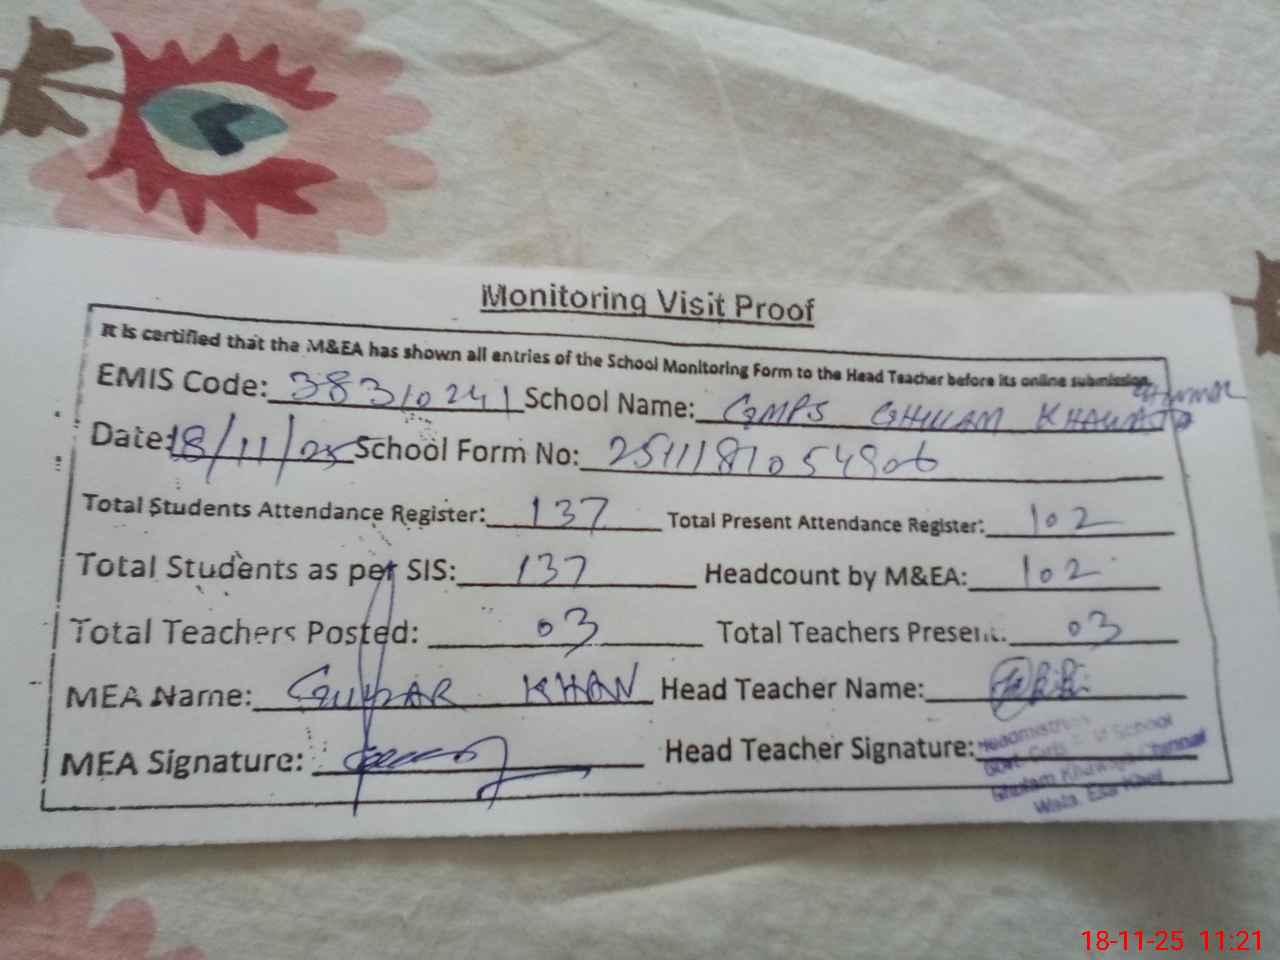 Monitoring Visit Proof
It is certified that the M&EA has shown all entries of the School Monitoring Form to the Head Teacher before its online submission.
EMIS Code: 38310241 School Name: GMPS GHULAM KHAWAJA
Date: 18/11/25 School Form No: 2511181054906
Total Students Attendance Register: 137 Total Present Attendance Register: 102
Total Students as per SIS: 137 Headcount by M&EA: 102
Total Teachers Posted: 03 Total Teachers Present: 03
MEA Name: KHAN Head Teacher Name:
MEA Signature: Head Teacher Signature:
Headmistress
Govt. Girls School
Ghulam Khawaja
Wala
18-11-25 11:21